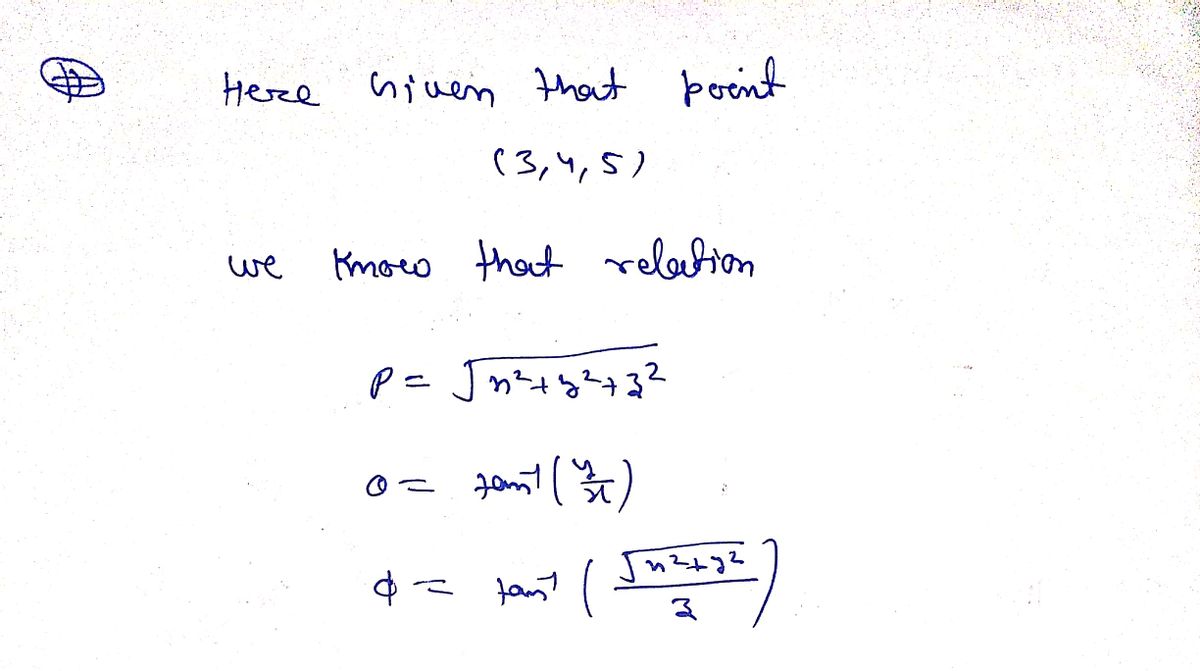 Here Given that point
(3,4,5)
we know that relation
ρ = √x²+y²+z²
θ = tan⁻¹(y/x)
φ = tan⁻¹(√x²+y²/z)